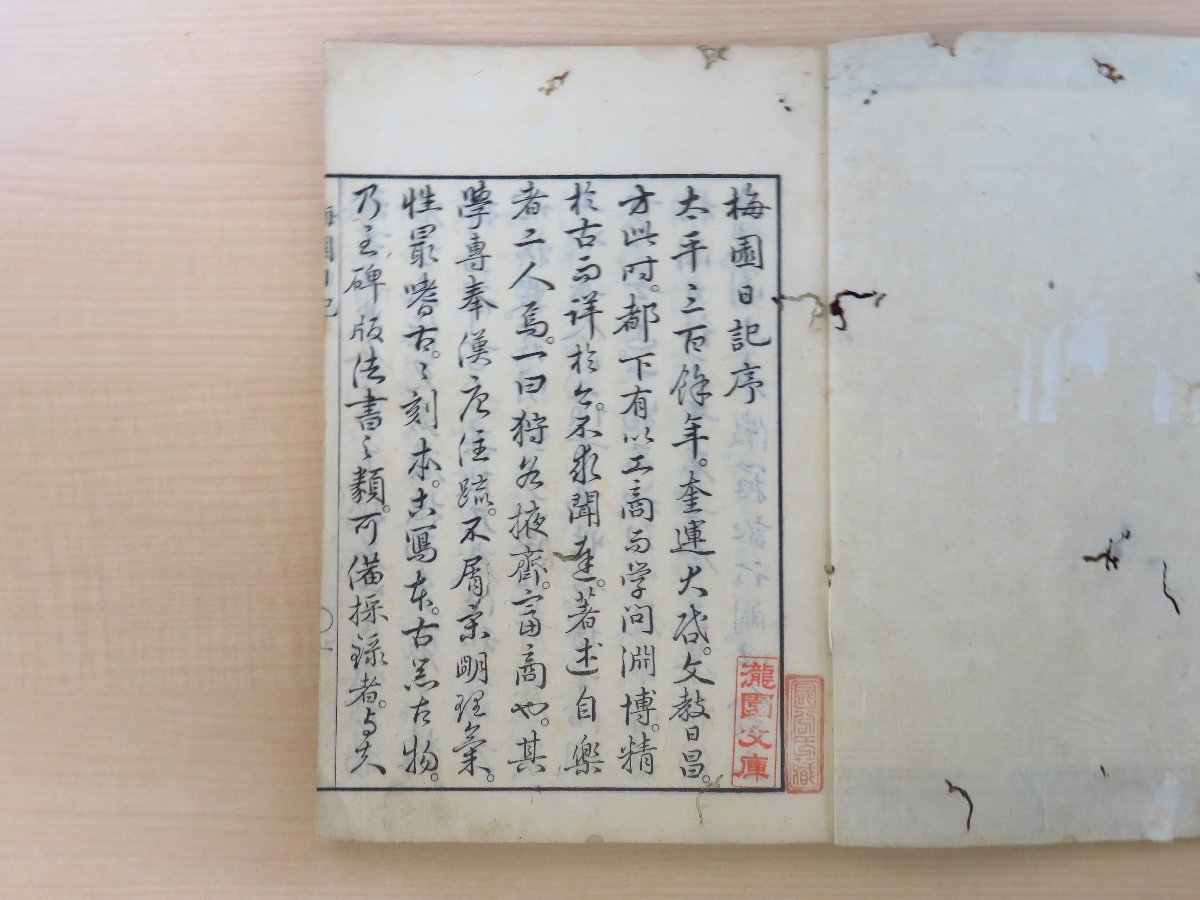 梅園日記序
太平三百餘年。奎運大啓。文教日昌。
方此時。都下有以工商而学問淵博。精
於古而詳於今。不求聞達。著述自樂
者二人焉。一曰狩谷掖齋。富商也。其
學專奉漢唐注疏。不屑宋明理氣。
性最嗜古。〻刻本。古寫本。古器古物。
乃至碑版法書之類。可備採録者。与夫
梅園日記
瀧園文庫